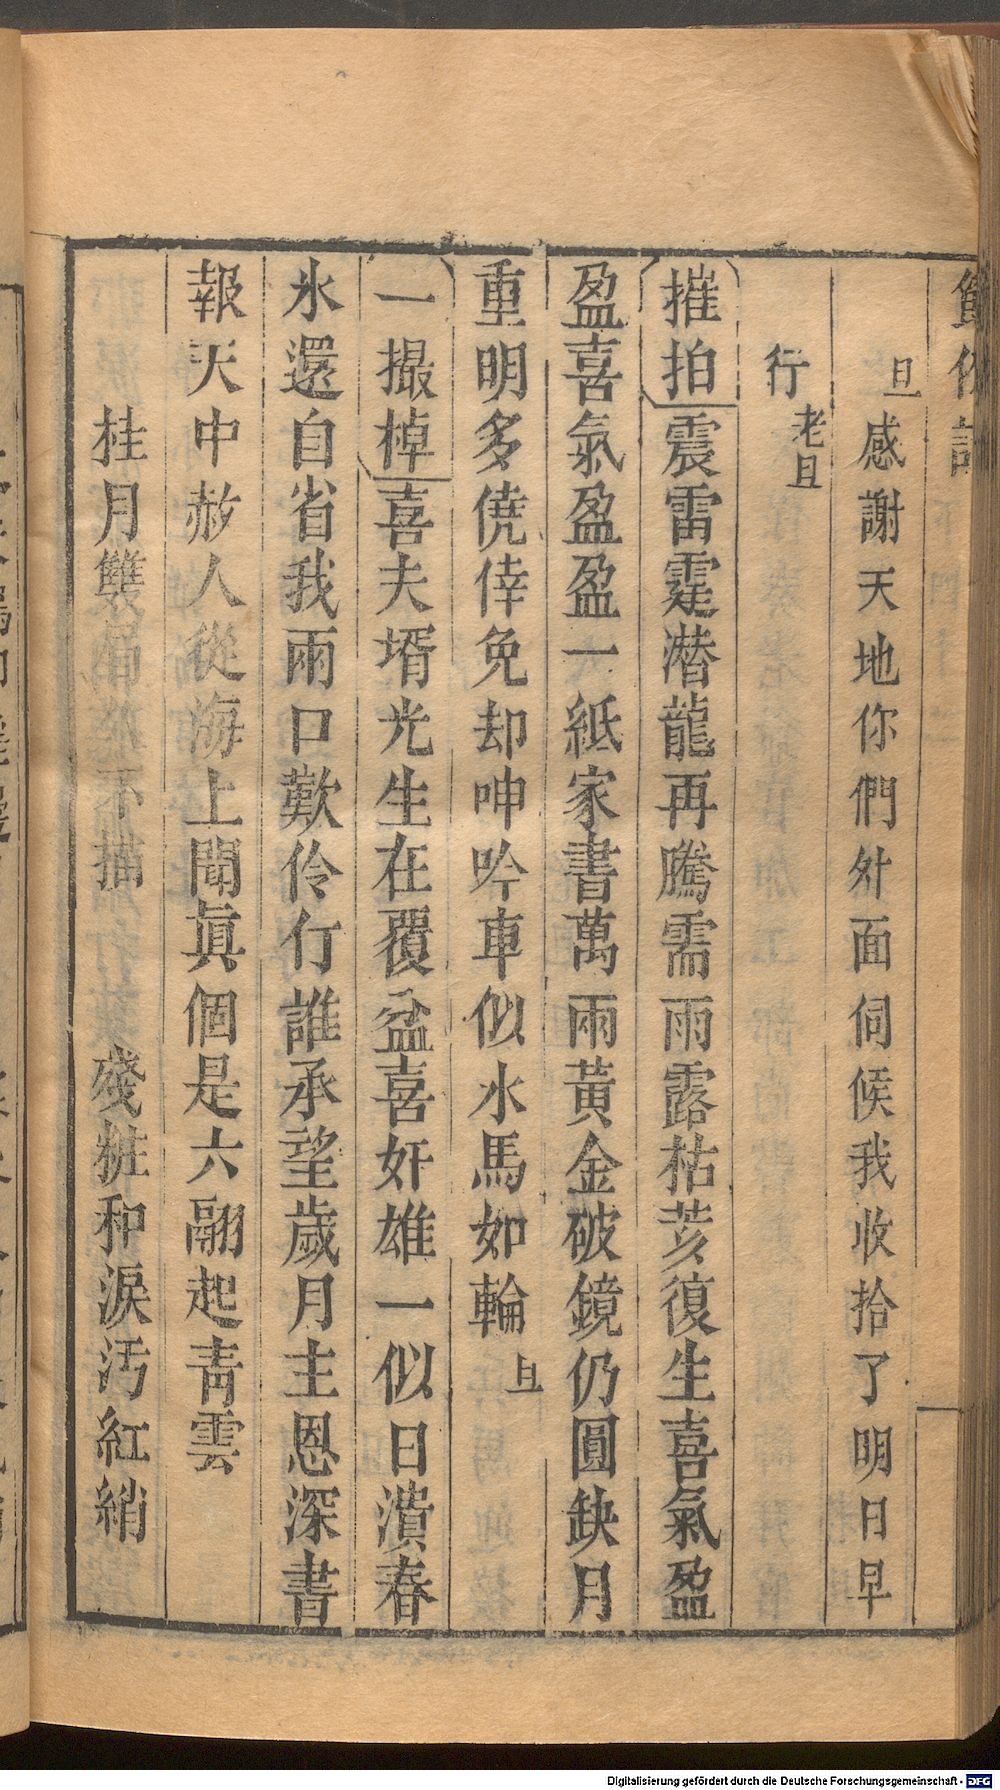 旦感謝天地你們外面伺候我收拾了明日早
行老旦
摧拍震雷霆潛龍再騰需雨露枯荄復生喜氣盈
盈喜氣盈盈一紙家書萬兩黃金破鏡仍圓缺月
重明多僥倖免却呻吟車似水馬如輪旦
一撮棹喜夫壻光生在覆盆喜奸雄一似日潰春
氷還自省我兩口歎伶仃誰承望歲月主恩深書
報天中赦人從海上聞眞個是六翮起靑雲
桂月雙眉 不描 殘粧和淚汚紅綃
Digitalisierung gefördert durch die Deutsche Forschungsgemeinschaft - DFG